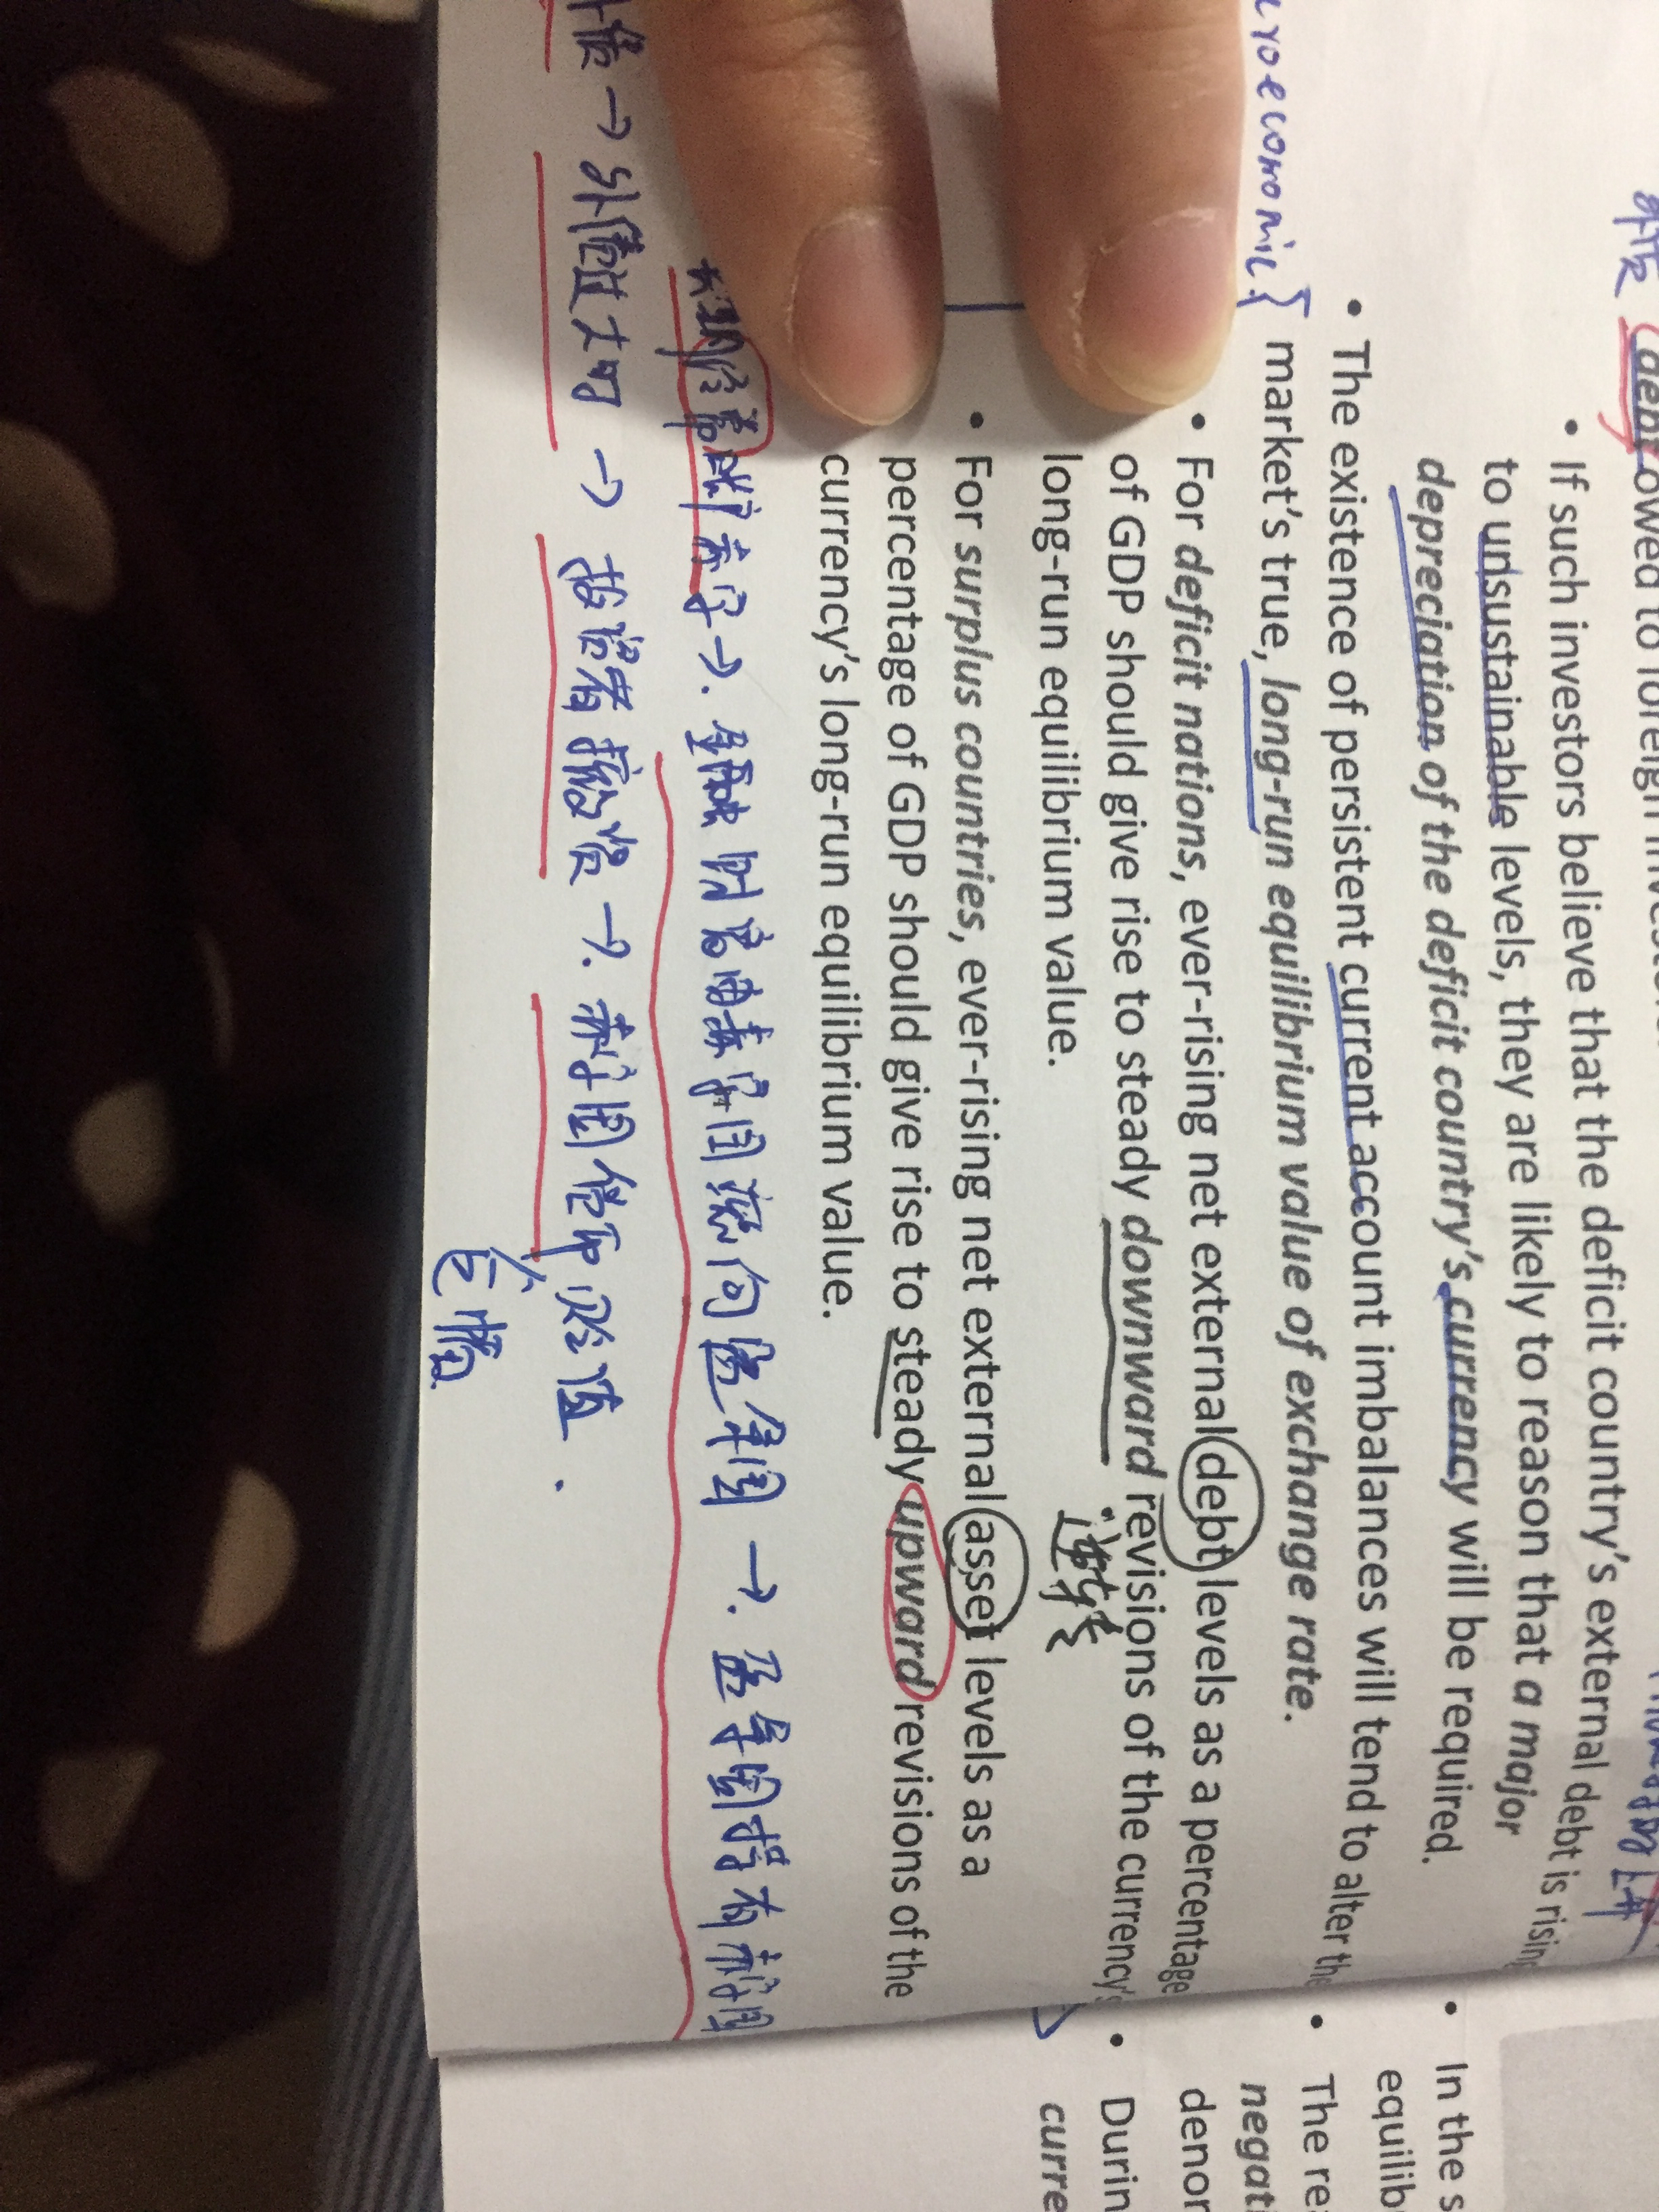 外债
debt owed to foreign
• If such investors believe that the deficit country's external debt is rising
to unsustainable levels, they are likely to reason that a major
depreciation of the deficit country's currency will be required.
• The existence of persistent current account imbalances will tend to alter the
market's true, long-run equilibrium value of exchange rate.
• For deficit nations, ever-rising net external debt levels as a percentage
of GDP should give rise to steady downward revisions of the currency's
long-run equilibrium value.
逆转
• For surplus countries, ever-rising net external asset levels as a
percentage of GDP should give rise to steady upward revisions of the
currency's long-run equilibrium value.
长期经常账户赤字→. 金融财富由赤字国流向盈余国→. 盈余国持有赤字国
外债→外债过大时→投资者撤资→. 赤字国货币贬值.
• In the s
equilib
• The rea
negati
denon
• Durin
curre